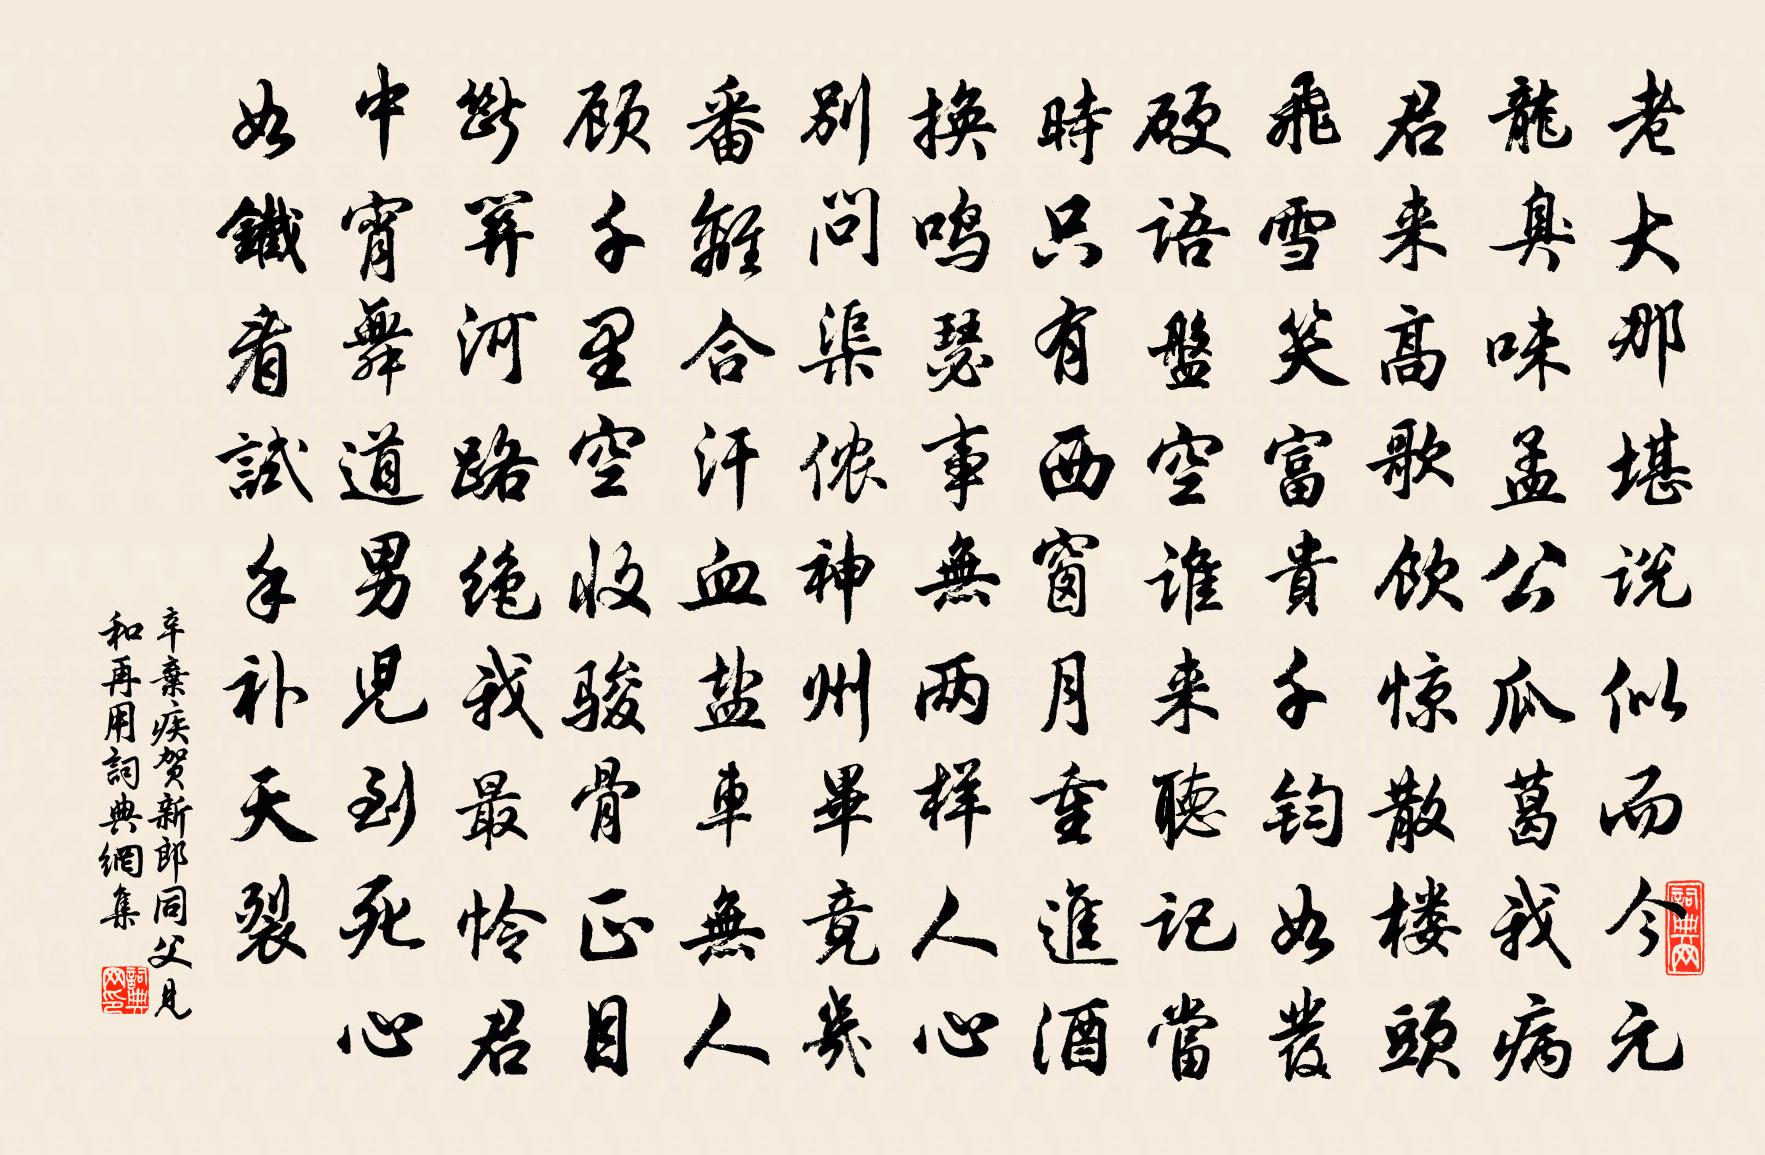 老大那堪说似而今元
龍臭味孟公瓜葛我病
君来高歌饮惊散楼頭
飛雪笑富貴千钧如發
硬语盤空谁来聽记當
時只有西窗月重進酒
换鸣瑟事無两样人心
别问渠侬神州畢竟幾
番離合汗血盐車無人
顾千里空收骏骨正目
斷関河路绝我最怜君
中宵舞道男児到死心
如鐵看試手补天裂
辛棄疾贺新郎同父見
和再用詞典網集
詞典网
詞典网印